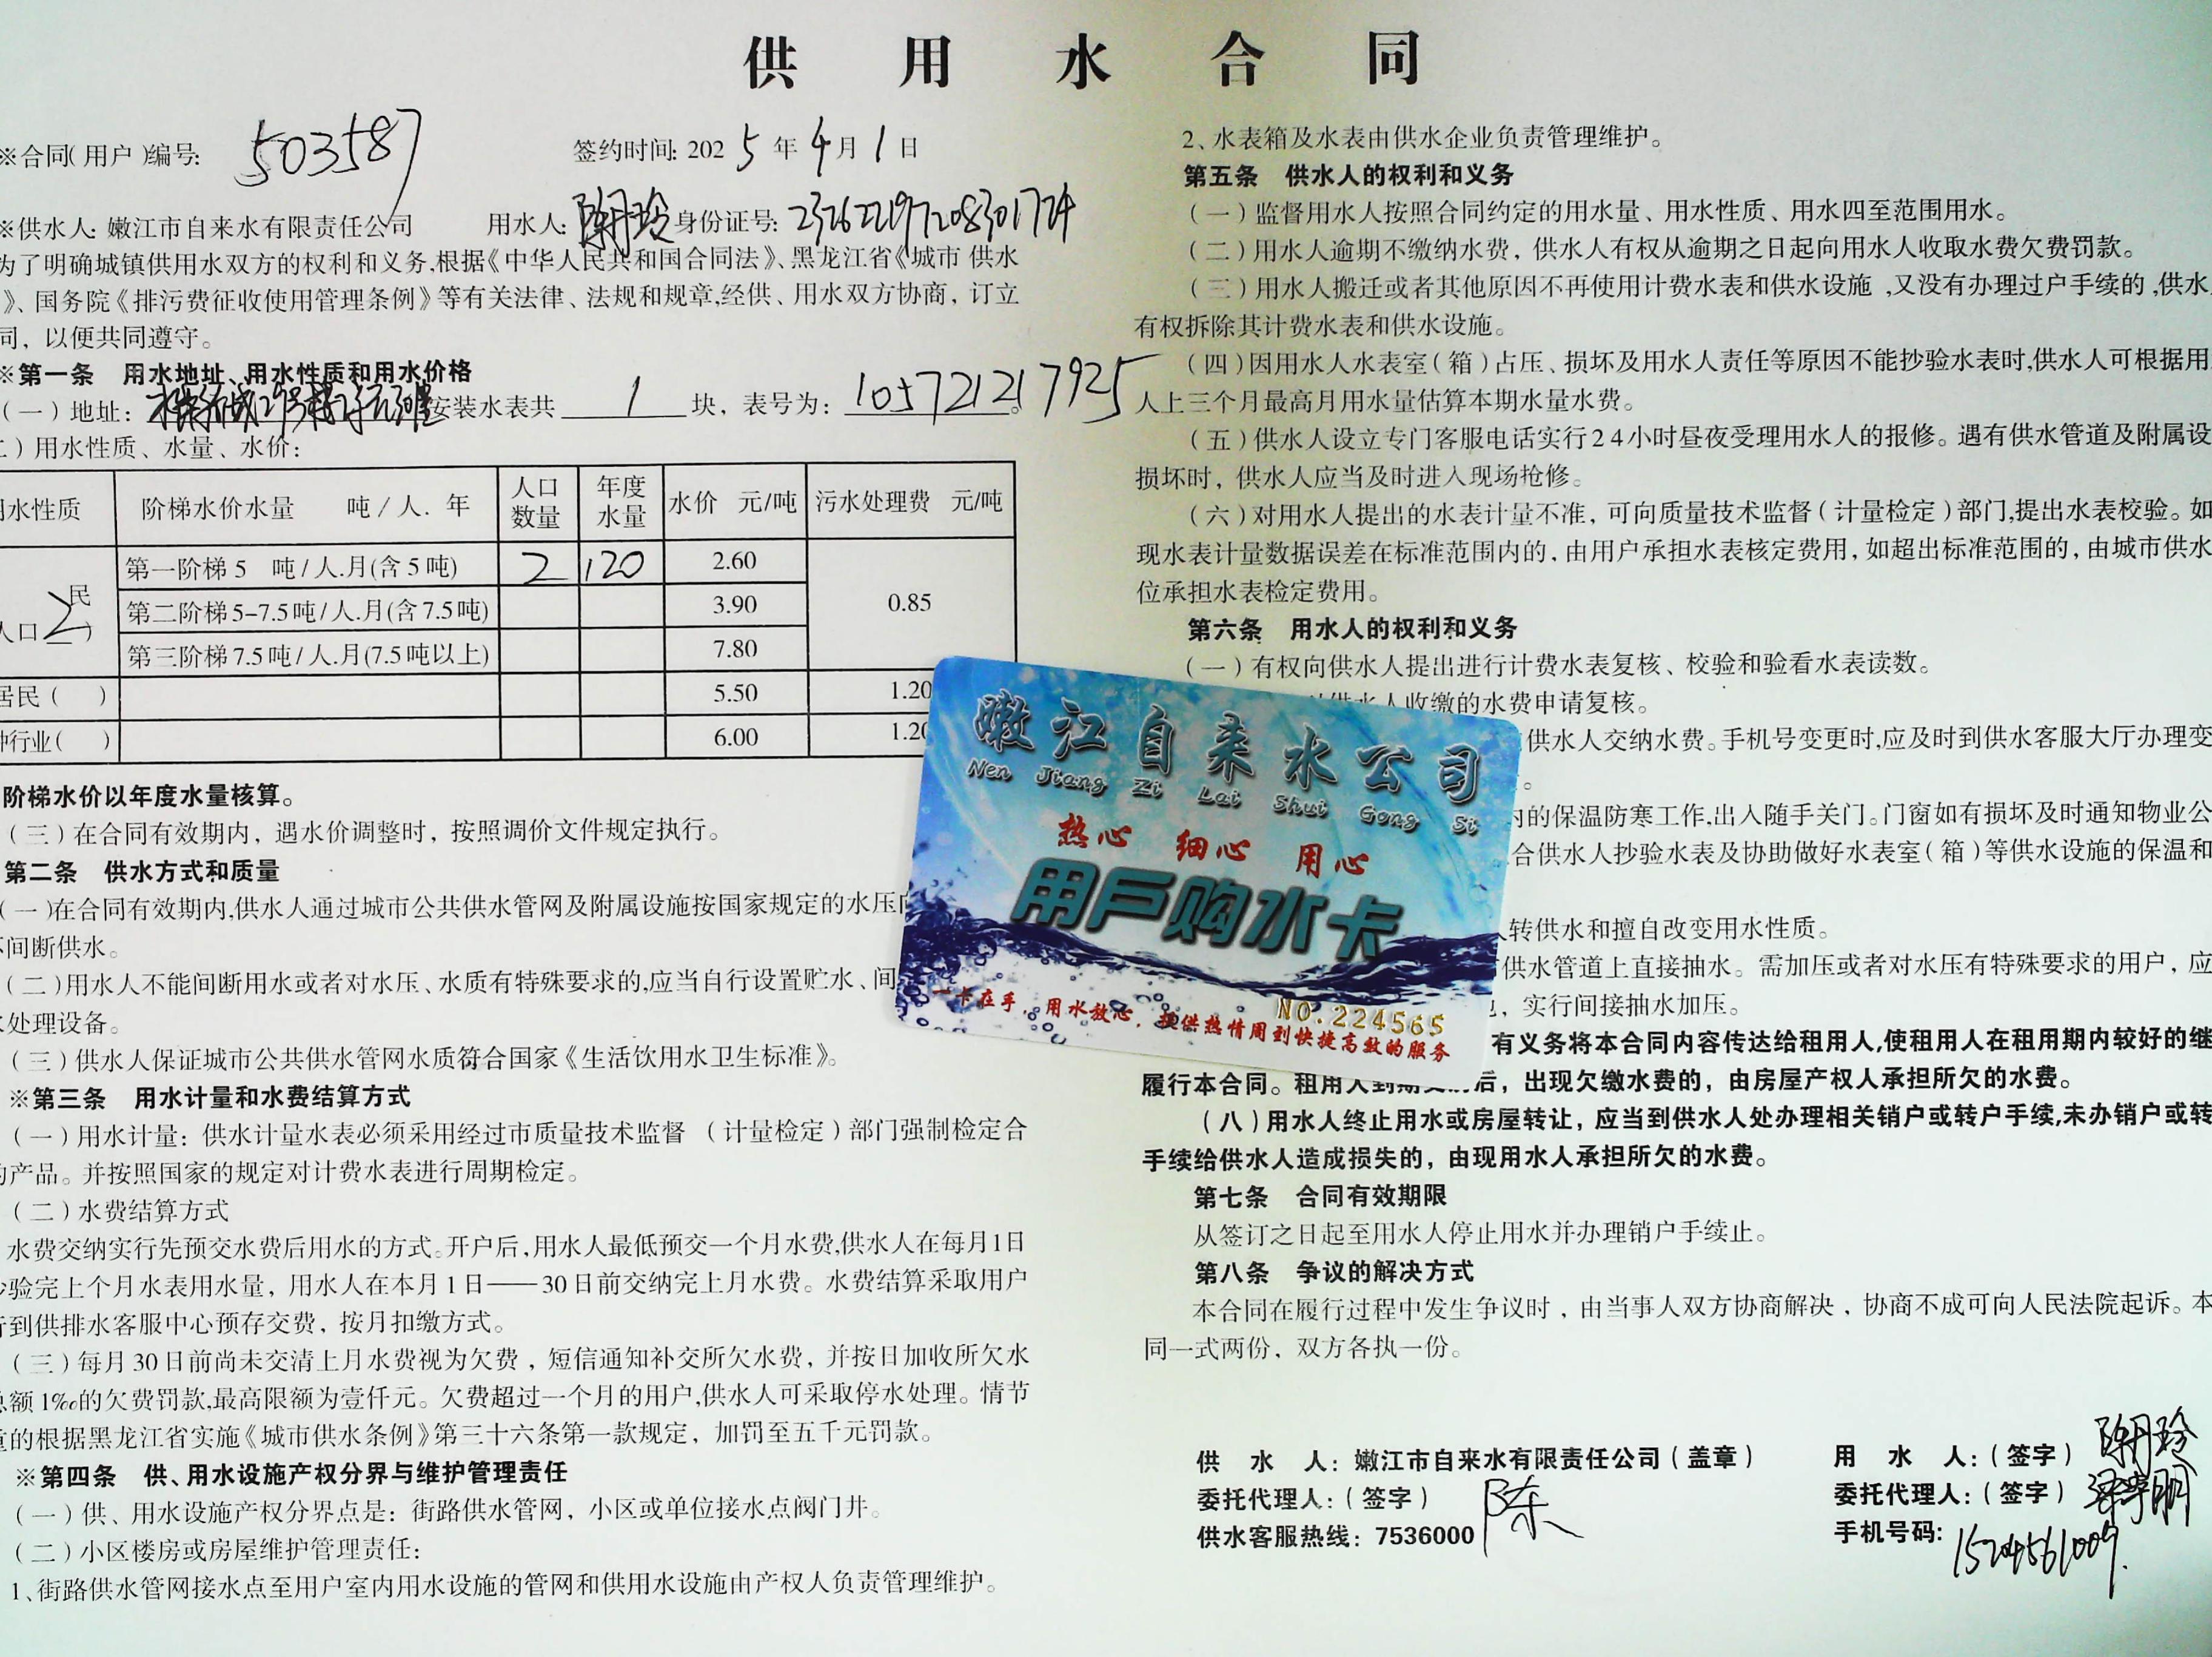 供用水合同
※合同(用户)编号: 503587 签约时间: 2025年4月1日
※供水人: 嫩江市自来水有限责任公司 用水人: 身份证号: 232622197208301724
为了明确城镇供用水双方的权利和义务,根据《中华人民共和国合同法》、黑龙江省《城市 供水
》、国务院《排污费征收使用管理条例》等有关法律、法规和规章,经供、用水双方协商，订立
同，以便共同遵守。
※第一条 用水地址、用水性质和用水价格
(一)地址: 安装水表共 1 块，表号为: 105721217925。
)用水性质、水量、水价:
水性质 阶梯水价水量 吨/人.年 人口数量 年度水量 水价 元/吨 污水处理费 元/吨
民
人口2)
第一阶梯5 吨/人.月(含5吨) 2 120 2.60 0.85
第二阶梯5-7.5吨/人.月(含7.5吨) 3.90
第三阶梯7.5吨/人.月(7.5吨以上) 7.80
居民( ) 5.50 1.20
行业( ) 6.00 1.20
阶梯水价以年度水量核算。
(三)在合同有效期内，遇水价调整时，按照调价文件规定执行。
第二条 供水方式和质量
(一)在合同有效期内,供水人通过城市公共供水管网及附属设施按国家规定的水压
间断供水。
(二)用水人不能间断用水或者对水压、水质有特殊要求的,应当自行设置贮水、间
处理设备。
(三)供水人保证城市公共供水管网水质符合国家《生活饮用水卫生标准》。
※第三条 用水计量和水费结算方式
(一)用水计量: 供水计量水表必须采用经过市质量技术监督 (计量检定)部门强制检定合
的产品。并按照国家的规定对计费水表进行周期检定。
(二)水费结算方式
水费交纳实行先预交水费后用水的方式。开户后,用水人最低预交一个月水费,供水人在每月1日
验完上个月水表用水量，用水人在本月1日——30日前交纳完上月水费。水费结算采取用户
行到供排水客服中心预存交费，按月扣缴方式。
(三)每月30日前尚未交清上月水费视为欠费，短信通知补交所欠水费，并按日加收所欠水
总额1‰的欠费罚款,最高限额为壹仟元。欠费超过一个月的用户,供水人可采取停水处理。情节
重的根据黑龙江省实施《城市供水条例》第三十六条第一款规定，加罚至五千元罚款。
※第四条 供、用水设施产权分界与维护管理责任
(一)供、用水设施产权分界点是: 街路供水管网，小区或单位接水点阀门井。
(二)小区楼房或房屋维护管理责任:
1、街路供水管网接水点至用户室内用水设施的管网和供用水设施由产权人负责管理维护。
2、水表箱及水表由供水企业负责管理维护。
第五条 供水人的权利和义务
(一)监督用水人按照合同约定的用水量、用水性质、用水四至范围用水。
(二)用水人逾期不缴纳水费，供水人有权从逾期之日起向用水人收取水费欠费罚款。
(三)用水人搬迁或者其他原因不再使用计费水表和供水设施,又没有办理过户手续的,供水
有权拆除其计费水表和供水设施。
(四)因用水人水表室(箱)占压、损坏及用水人责任等原因不能抄验水表时,供水人可根据用
人上三个月最高月用水量估算本期水量水费。
(五)供水人设立专门客服电话实行24小时昼夜受理用水人的报修。遇有供水管道及附属设
损坏时，供水人应当及时进入现场抢修。
(六)对用水人提出的水表计量不准，可向质量技术监督(计量检定)部门,提出水表校验。如
现水表计量数据误差在标准范围内的，由用户承担水表核定费用，如超出标准范围的，由城市供水
位承担水表检定费用。
第六条 用水人的权利和义务
(一)有权向供水人提出进行计费水表复核、校验和验看水表读数。
供水人收缴的水费申请复核。
供水人交纳水费。手机号变更时,应及时到供水客服大厅办理变
。
内的保温防寒工作,出入随手关门。门窗如有损坏及时通知物业公
合供水人抄验水表及协助做好水表室(箱)等供水设施的保温和
转供水和擅自改变用水性质。
供水管道上直接抽水。需加压或者对水压有特殊要求的用户，应
，实行间接抽水加压。
有义务将本合同内容传达给租用人,使租用人在租用期内较好的继
履行本合同。租用人到期 后，出现欠缴水费的，由房屋产权人承担所欠的水费。
(八)用水人终止用水或房屋转让，应当到供水人处办理相关销户或转户手续,未办销户或转
手续给供水人造成损失的，由现用水人承担所欠的水费。
第七条 合同有效期限
从签订之日起至用水人停止用水并办理销户手续止。
第八条 争议的解决方式
本合同在履行过程中发生争议时，由当事人双方协商解决，协商不成可向人民法院起诉。本
同一式两份，双方各执一份。
供水人: 嫩江市自来水有限责任公司(盖章)
委托代理人:(签字) 陈
供水客服热线: 7536000
用水人:(签字)
委托代理人:(签字)
手机号码: 15204561009
嫩江自来水公司
Nen Jiang Zi Lai Shui Gong Si
热心 细心 用心
用户购水卡
NO.224565
一卡在手，用水放心，提供热情周到快捷高效的服务